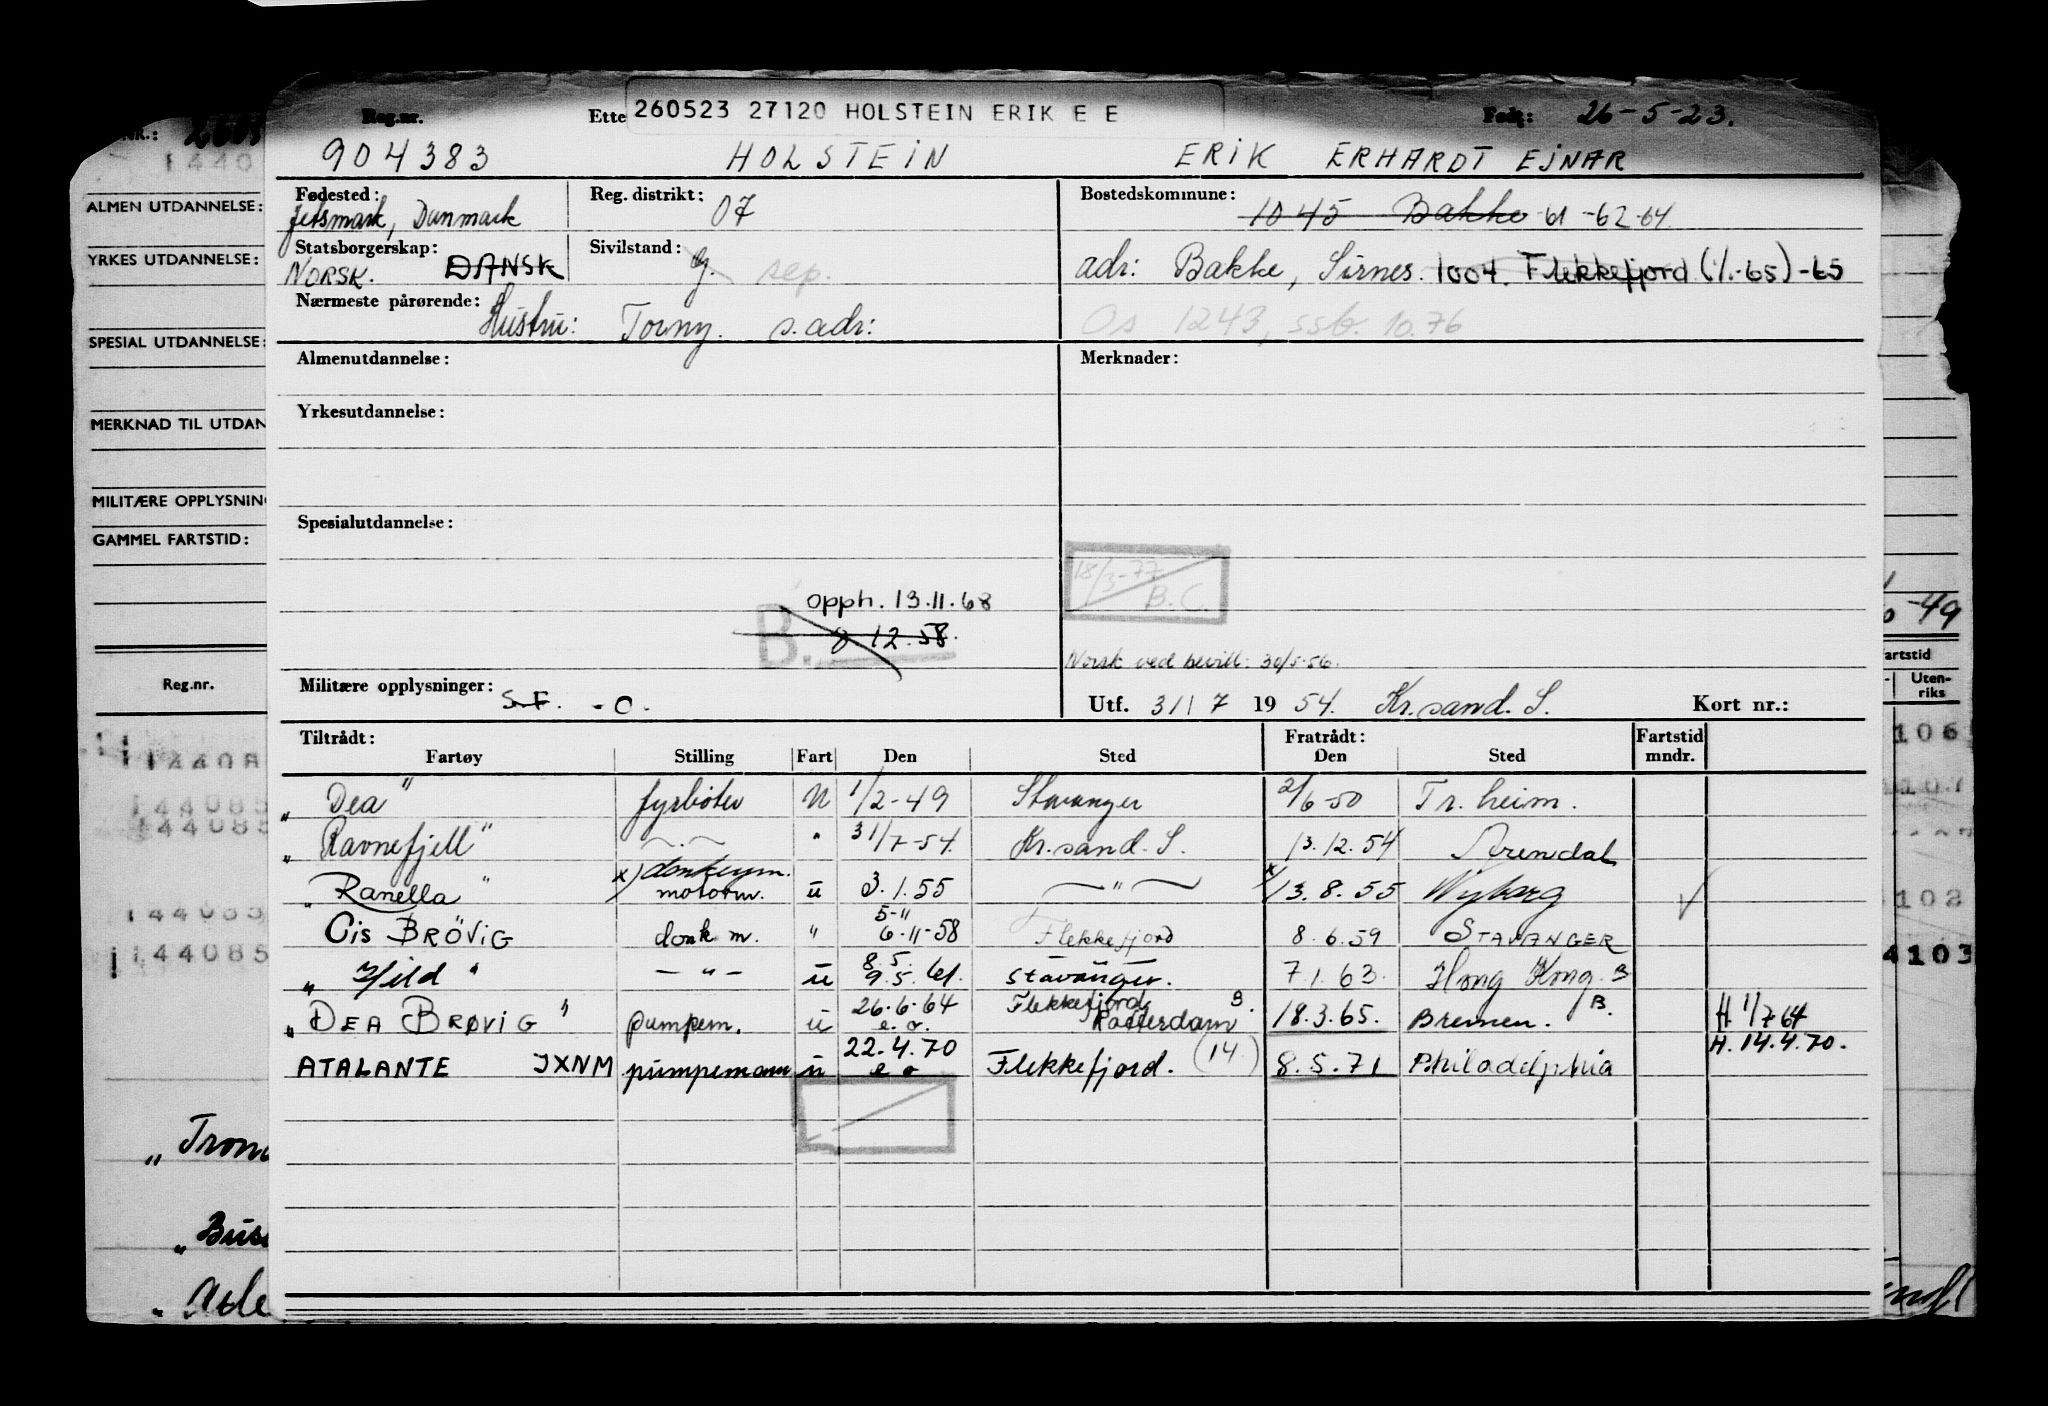 Reg.nr. Ette 260523 27120 HOLSTEIN ERIK E E Født: 26-5-23.
904383 HOLSTEIN ERIK ERHARDT EJNAR
Fødested: Jetsmark, Danmark Reg. distrikt: 07 Bostedskommune: 1045 Bakke 61-62-64
Statsborgerskap: NORSK. DANSK Sivilstand: G. sep. adr: Bakke, Sirnes. 1004. Flekkefjord (1.-65)-65
Nærmeste pårørende: Hustru: Torny. s. adr: Os 1243, ssb. 10.76
Almenutdannelse: Merknader:
Yrkesutdannelse:
Spesialutdannelse:
18/3-77 B.C.
opph. 13.11.68
B. 8 12.58.
Norsk ved bevill: 30/5-56.
Militære opplysninger: S.F. -O. Utf. 31/7 1954. Kr.sand. S. Kort nr.:
Tiltrådt: Fratrådt: Fartstid
Fartøy Stilling Fart Den Sted Den Sted mndr.
„Dea" fyrbøter N 1/2-49 Stavanger 2/6-50 Tr.heim.
„Ravnefjell" -.- " 31/7-54. Kr.sand. S. 13.12.54 Arendal
x) donkeym.
„Ranella" motorm. u 3.1.55 -"- x/13.8.55 Nyborg
5-11
Cis BRÖViG donk m. " 6-11-58 Flekkefjord 8.6.59 STAVANGER
8.5.
„Hild" -"- u 9.5.61. Stavanger. 7.1.63. Hong Kong. B
26.6.64 Flekkefjord B
„DEA BRØViG" pumpem. u e.o. Rotterdam 18.3.65. Bremen. B. H. 1/7 64
22.4.70 H. 14.4.70.
ATALANTE JXNM pumpemann u e o Flekkefjord. (14.) 8.5.71 Philadelphia
ALMEN UTDANNELSE:
YRKES UTDANNELSE:
SPESIAL UTDANNELSE:
MERKNAD TIL UTDAN
MILITÆRE OPPLYSNIN
GAMMEL FARTSTID:
Reg.nr.
144085
144085
144085
144085
„Tron
„Buse
-49
artstid
Uten-
riks
106
107
102
4103